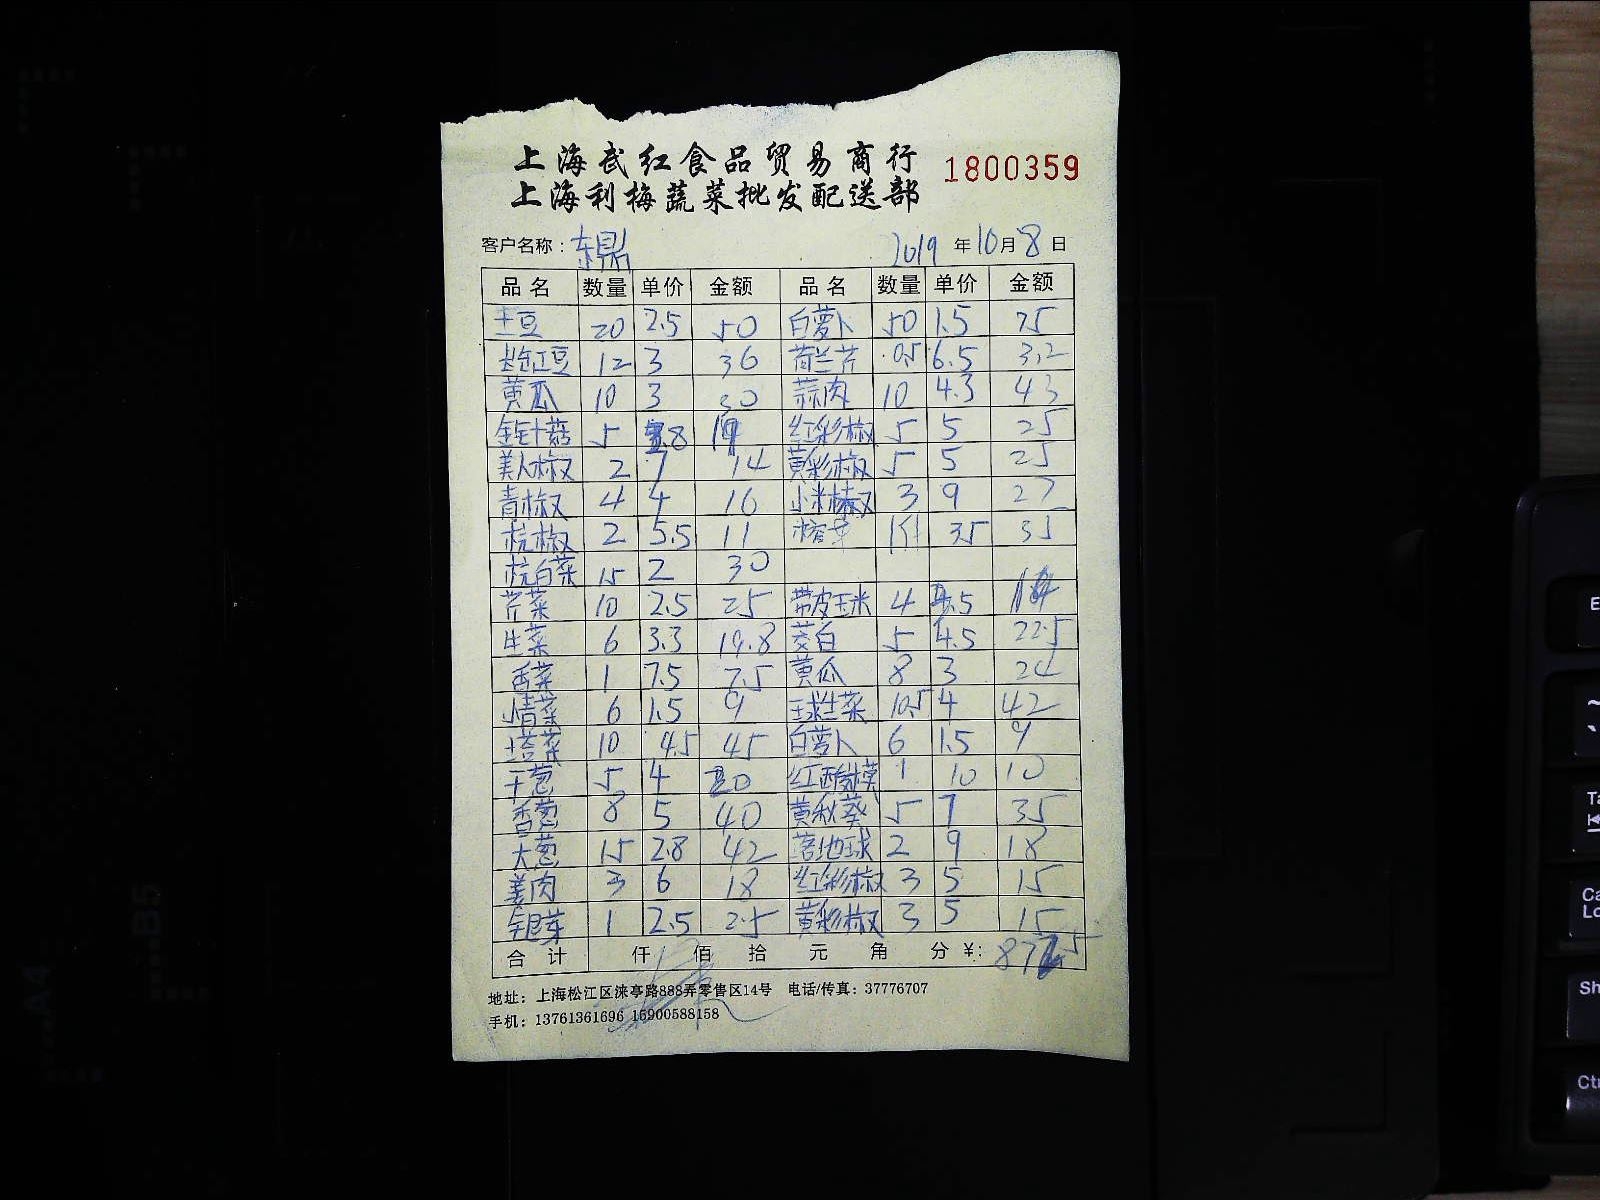 上海武红食品贸易商行 1800359
上海利梅蔬菜批发配送部
客户名称：东鼎 2019 年 10 月 8 日
品名 数量 单价 金额 品名 数量 单价 金额
土豆 20 2.5 50 白萝卜 50 1.5 75
长豇豆 12 3 36 荷兰芹 0.5 6.5 3.2
黄瓜 10 3 30 蒜肉 10 4.3 43
金针菇 5 3.8 19 红彩椒 5 5 25
美人椒 2 7 14 黄彩椒 5 5 25
青椒 4 4 16 小米椒 3 9 27
杭椒 2 5.5 11 榨菜 1件 35 35
杭白菜 15 2 30
芹菜 10 2.5 25 带皮玉米 4 .5
生菜 6 3.3 19.8 茭白 5 4.5 22.5
香菜 1 7.5 7.5 黄瓜 8 3 24
青菜 6 1.5 9 球生菜 10.5 4 42
塔菜 10 4.5 45 白萝卜 6 1.5 9
干葱 5 4 20 红 1 10 10
香葱 8 5 40 黄秋葵 5 7 35
大葱 15 2.8 42 落地球 2 9 18
姜肉 3 6 18 红彩椒 3 5 15
银芽 1 2.5 2.5 黄彩椒 3 5 15
合计 仟 佰 拾 元 角 分 ¥:
地址：上海松江区涞亭路888弄零售区14号 电话/传真：37776707
手机：13761361696 15900588158